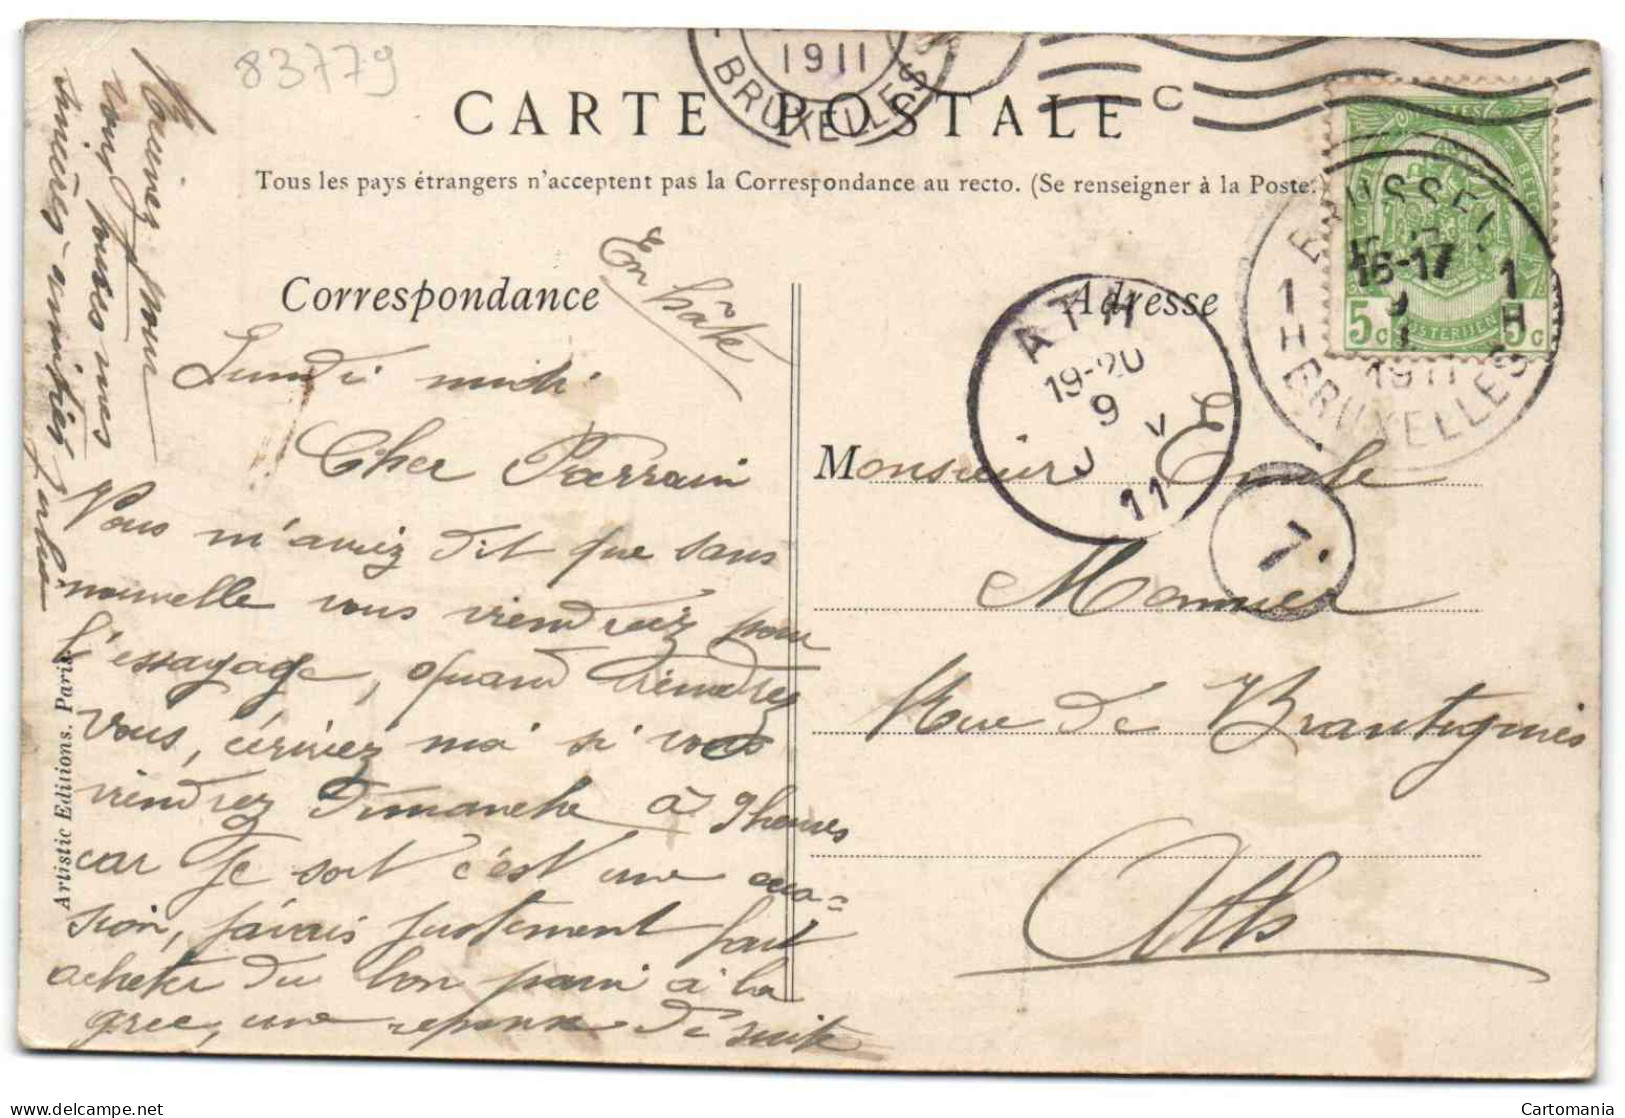 83779
1911
BRUXELLES
C
CARTE POSTALE
Tous les pays étrangers n'acceptent pas la Correspondance au recto. (Se renseigner à la Poste.
BRUSSEL
16-17
9
1911
1 H
1 H
BRUXELLES
5c 5c
POSTERIJEN
ATH
19-20
9
11
7
Correspondance
Adresse
En hâte
Lundi midi
Cher Parrain
Vous m'aviez dit que sans
nouvelle vous viendriez pour
l'essayage, quand viendrez
vous, écrivez moi si vous
viendrez Dimanche à 9 heures
car je sort c'est une occa=
sion, j'avais justement fait
acheter du bon pain à la
grec, une réponse de suite
Recevez pour
vous tous mes
sincères amitiés
Monsieur Emile
Monnier
Rue de Brantignies
Ath
Artistic Editions. Paris.
Cartomania